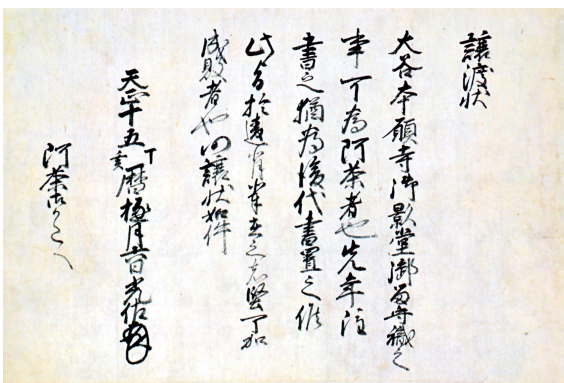 譲渡状
大谷本願寺御影堂御留守職之
事可為阿茶者也先年注
書之猶為後代書置之候
此旨於違背輩在之者堅可加
成敗者也仍譲状如件
天正十五丁亥暦極月六日光佐
阿茶御かたへ